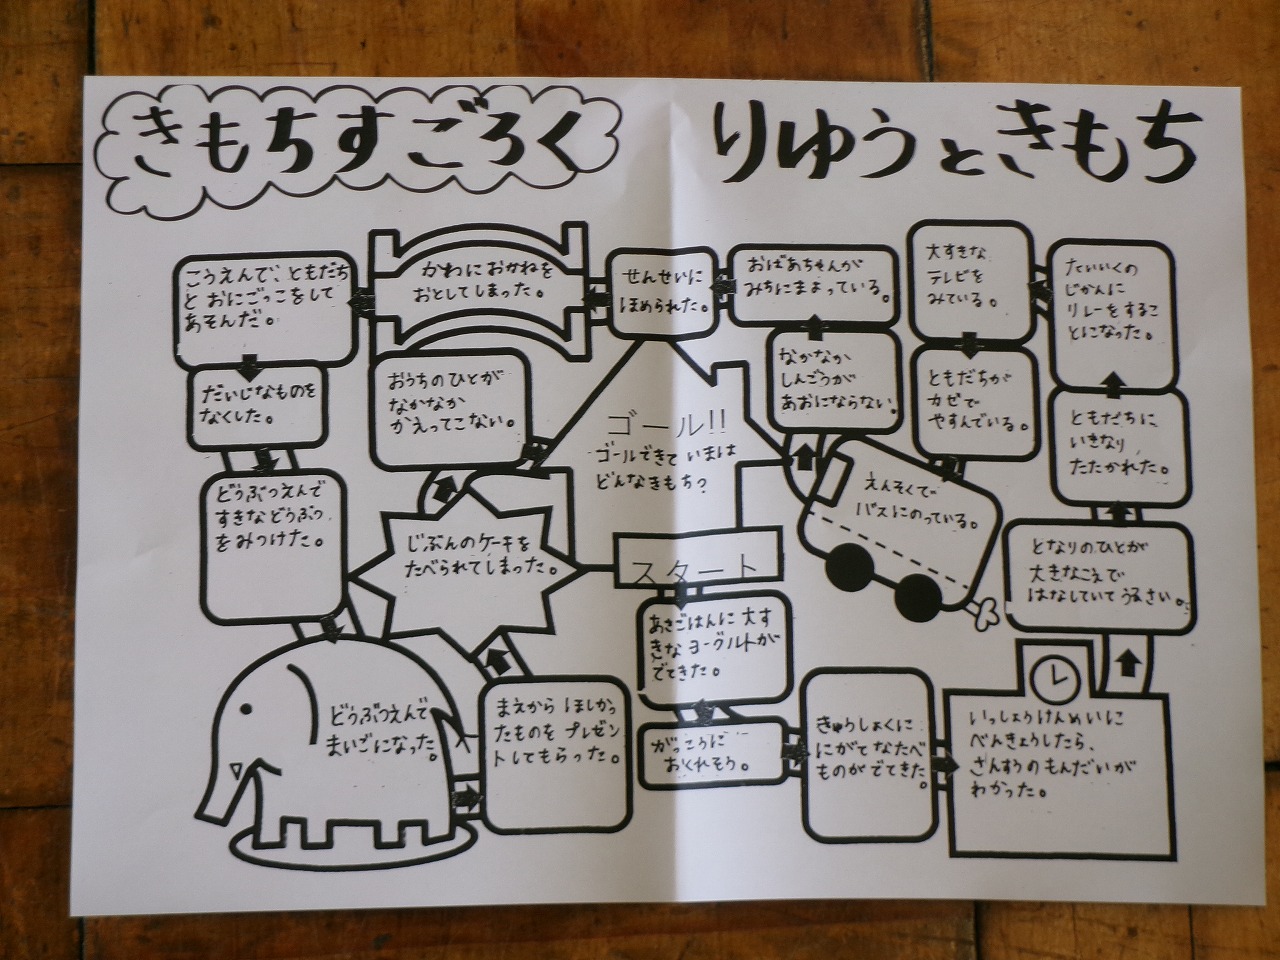 きもちすごろく
りゅうときもち
スタート
あさごはんに大す
きなヨーグルトが
でてきた。
がっこうに
おくれそう。
きゅうしょくに
にがてなたべ
ものがでてきた。
いっしょうけんめいに
べんきょうしたら、
さんすうのもんだいが
わかった。
となりのひとが
大きなこえで
はなしていてうるさい。
ともだちに
いきなり
たたかれた。
たいいくの
じかんに
リレーをするこ
とになった。
大すきな
テレビを
みている。
ともだちが
カゼで
やすんでいる。
えんそくで
バスにのっている。
なかなか
しんごうが
あおにならない。
おばあちゃんが
みちにまよっている。
せんせいに
ほめられた。
かわにおかねを
おとしてしまった。
こうえんで、ともだち
とおにごっこをして
あそんだ。
だいじなものを
なくした。
どうぶつえんで
すきなどうぶつ
をみつけた。
どうぶつえんで
まいごになった。
まえからほしかっ
たものをプレゼン
トしてもらった。
じぶんのケーキを
たべられてしまった。
おうちのひとが
なかなか
かえってこない。
ゴール!!
ゴールできていまは
どんなきもち?